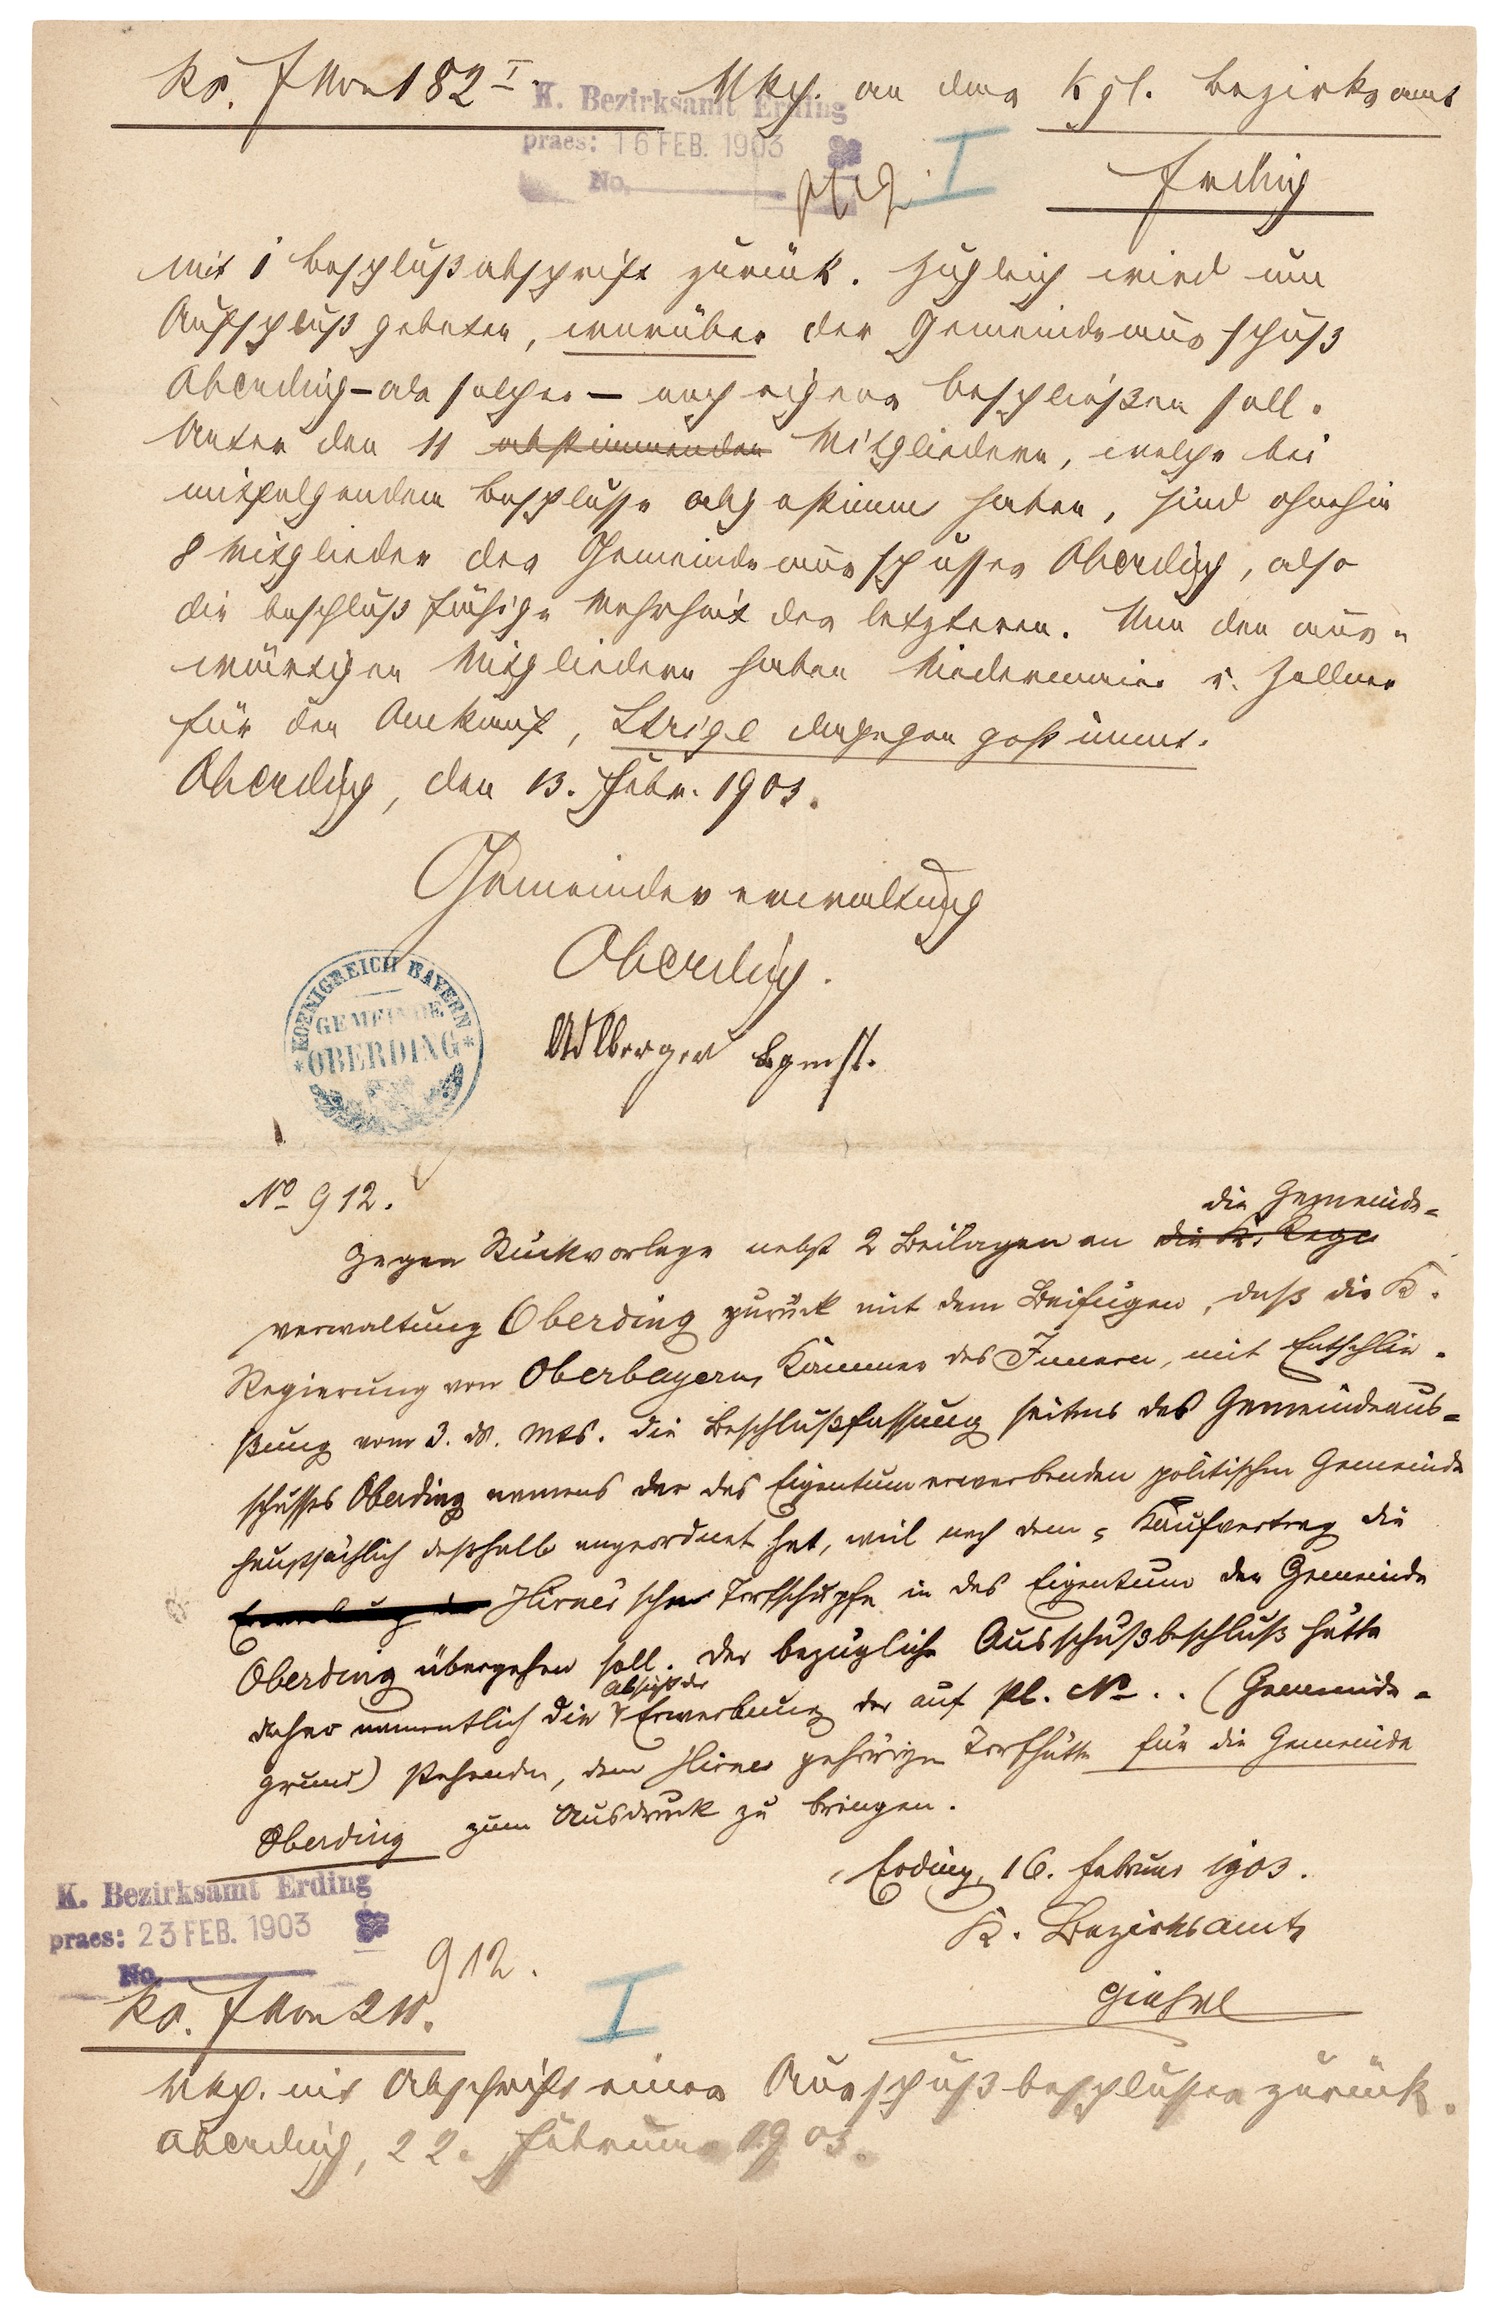 182 I.
Mkg. an das Kgl. Bezirksamt
K. Bezirksamt Erding
praes: 16 FEB. 1903
No.
I
Erding
mit 1 Beschlußabschrift zurück. Zugleich wird um
Aufschluß gebeten, worüber der Gemeindeausschuß
Oberding – als solcher – noch eigens beschließen soll.
Unter den 11 abstimmenden Mitgliedern, welche bei
mitfolgendem Beschlusse abgestimmt haben, sind ohnehin
8 Mitglieder des Gemeindeausschusses Oberding, also
die beschlußfähige Mehrheit des letzteren. Von den aus-
wärtigen Mitgliedern haben Niedermaier u. Zollner
für den Ankauf, Strigl dagegen gestimmt.
Oberding, den 13. Febr. 1903.
Gemeindeverwaltung
Oberding.
KOENIGREICH BAYERN
GEMEINDE
*OBERDING*
Adlberger Bgmst.
No 912.
die Gemeinde-
Gegen Rückvorlage nebst 2 Beilagen an die K. Regs
verwaltung Oberding zurück mit dem Beifügen, daß die K.
Regierung von Oberbayern, Kammer des Innern, mit Entschlie-
ßung vom 3. ds. Mts. die Beschlußfassung seitens des Gemeindeaus-
schusses Oberding namens der das Eigentum erwerbenden politischen Gemeinde
hauptsächlich deßhalb angeordnet hat, weil nach dem Kaufvertrag die
Hirner'sche Torfschupfe in das Eigentum der Gemeinde
Oberding übergehen soll. Der bezügliche Ausschußbeschluß hätte
Absicht der
daher namentlich die Erwerbung der auf Pl. No . . (Gemeinde-
grund) stehenden, dem Hirner gehörigen Torfhütte für die Gemeinde
Oberding zum Ausdruck zu bringen.
Erding, 16. Februar 1903.
K. Bezirksamt
K. Bezirksamt Erding
praes: 23 FEB. 1903
No.
912.
I
Mkg. mit Abschrift eines Ausschußbeschlusses zurück.
Oberding, 22. Februar 1903.